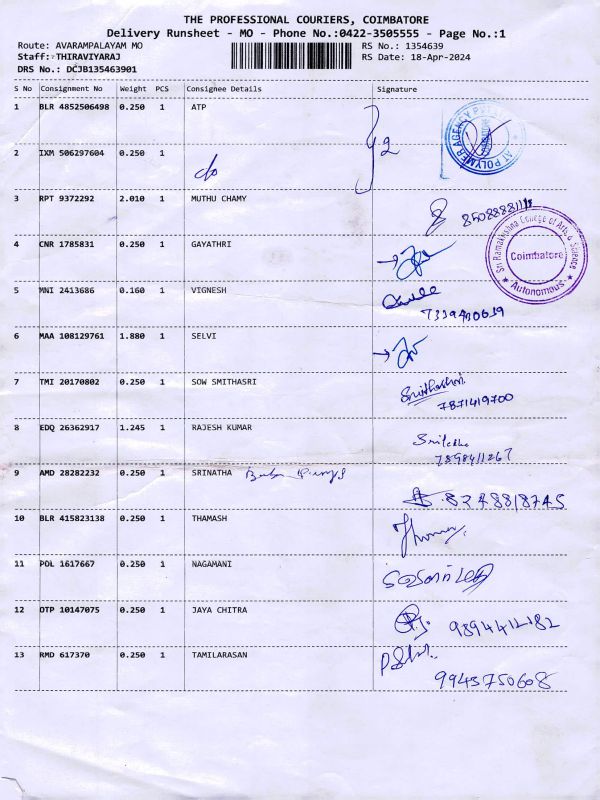 THE PROFESSIONAL COURIERS, COIMBATORE
Delivery Runsheet - MO - Phone No.:0422-3505555 - Page No.:1
Route: AVARAMPALAYAM MO RS No.: 1354639
Staff: THIRAVIYARAJ RS Date: 18-Apr-2024
DRS No.: DCJB135463901
S No Consignment No Weight PCS Consignee Details Signature
1 BLR 4852506498 0.250 1 ATP
2 IXM 506297604 0.250 1 c/o 2
3 RPT 9372292 2.010 1 MUTHU CHAMY
Sri Ramakrishna College of Arts & Science
Coimbatore
Autonomous
4 CNR 1785831 0.250 1 GAYATHRI
5 MNI 2413686 0.160 1 VIGNESH
6 MAA 108129761 1.880 1 SELVI
7 TMI 20170802 0.250 1 SOW SMITHASRI
7871419700
8 EDQ 26362917 1.245 1 RAJESH KUMAR
7898411267
9 AMD 28282232 0.250 1 SRINATHA
8248818745
10 BLR 415823138 0.250 1 THAMASH
11 POL 1617667 0.250 1 NAGAMANI
12 DTP 10147075 0.250 1 JAYA CHITRA
9894412182
13 RMD 617370 0.250 1 TAMILARASAN
9943750608